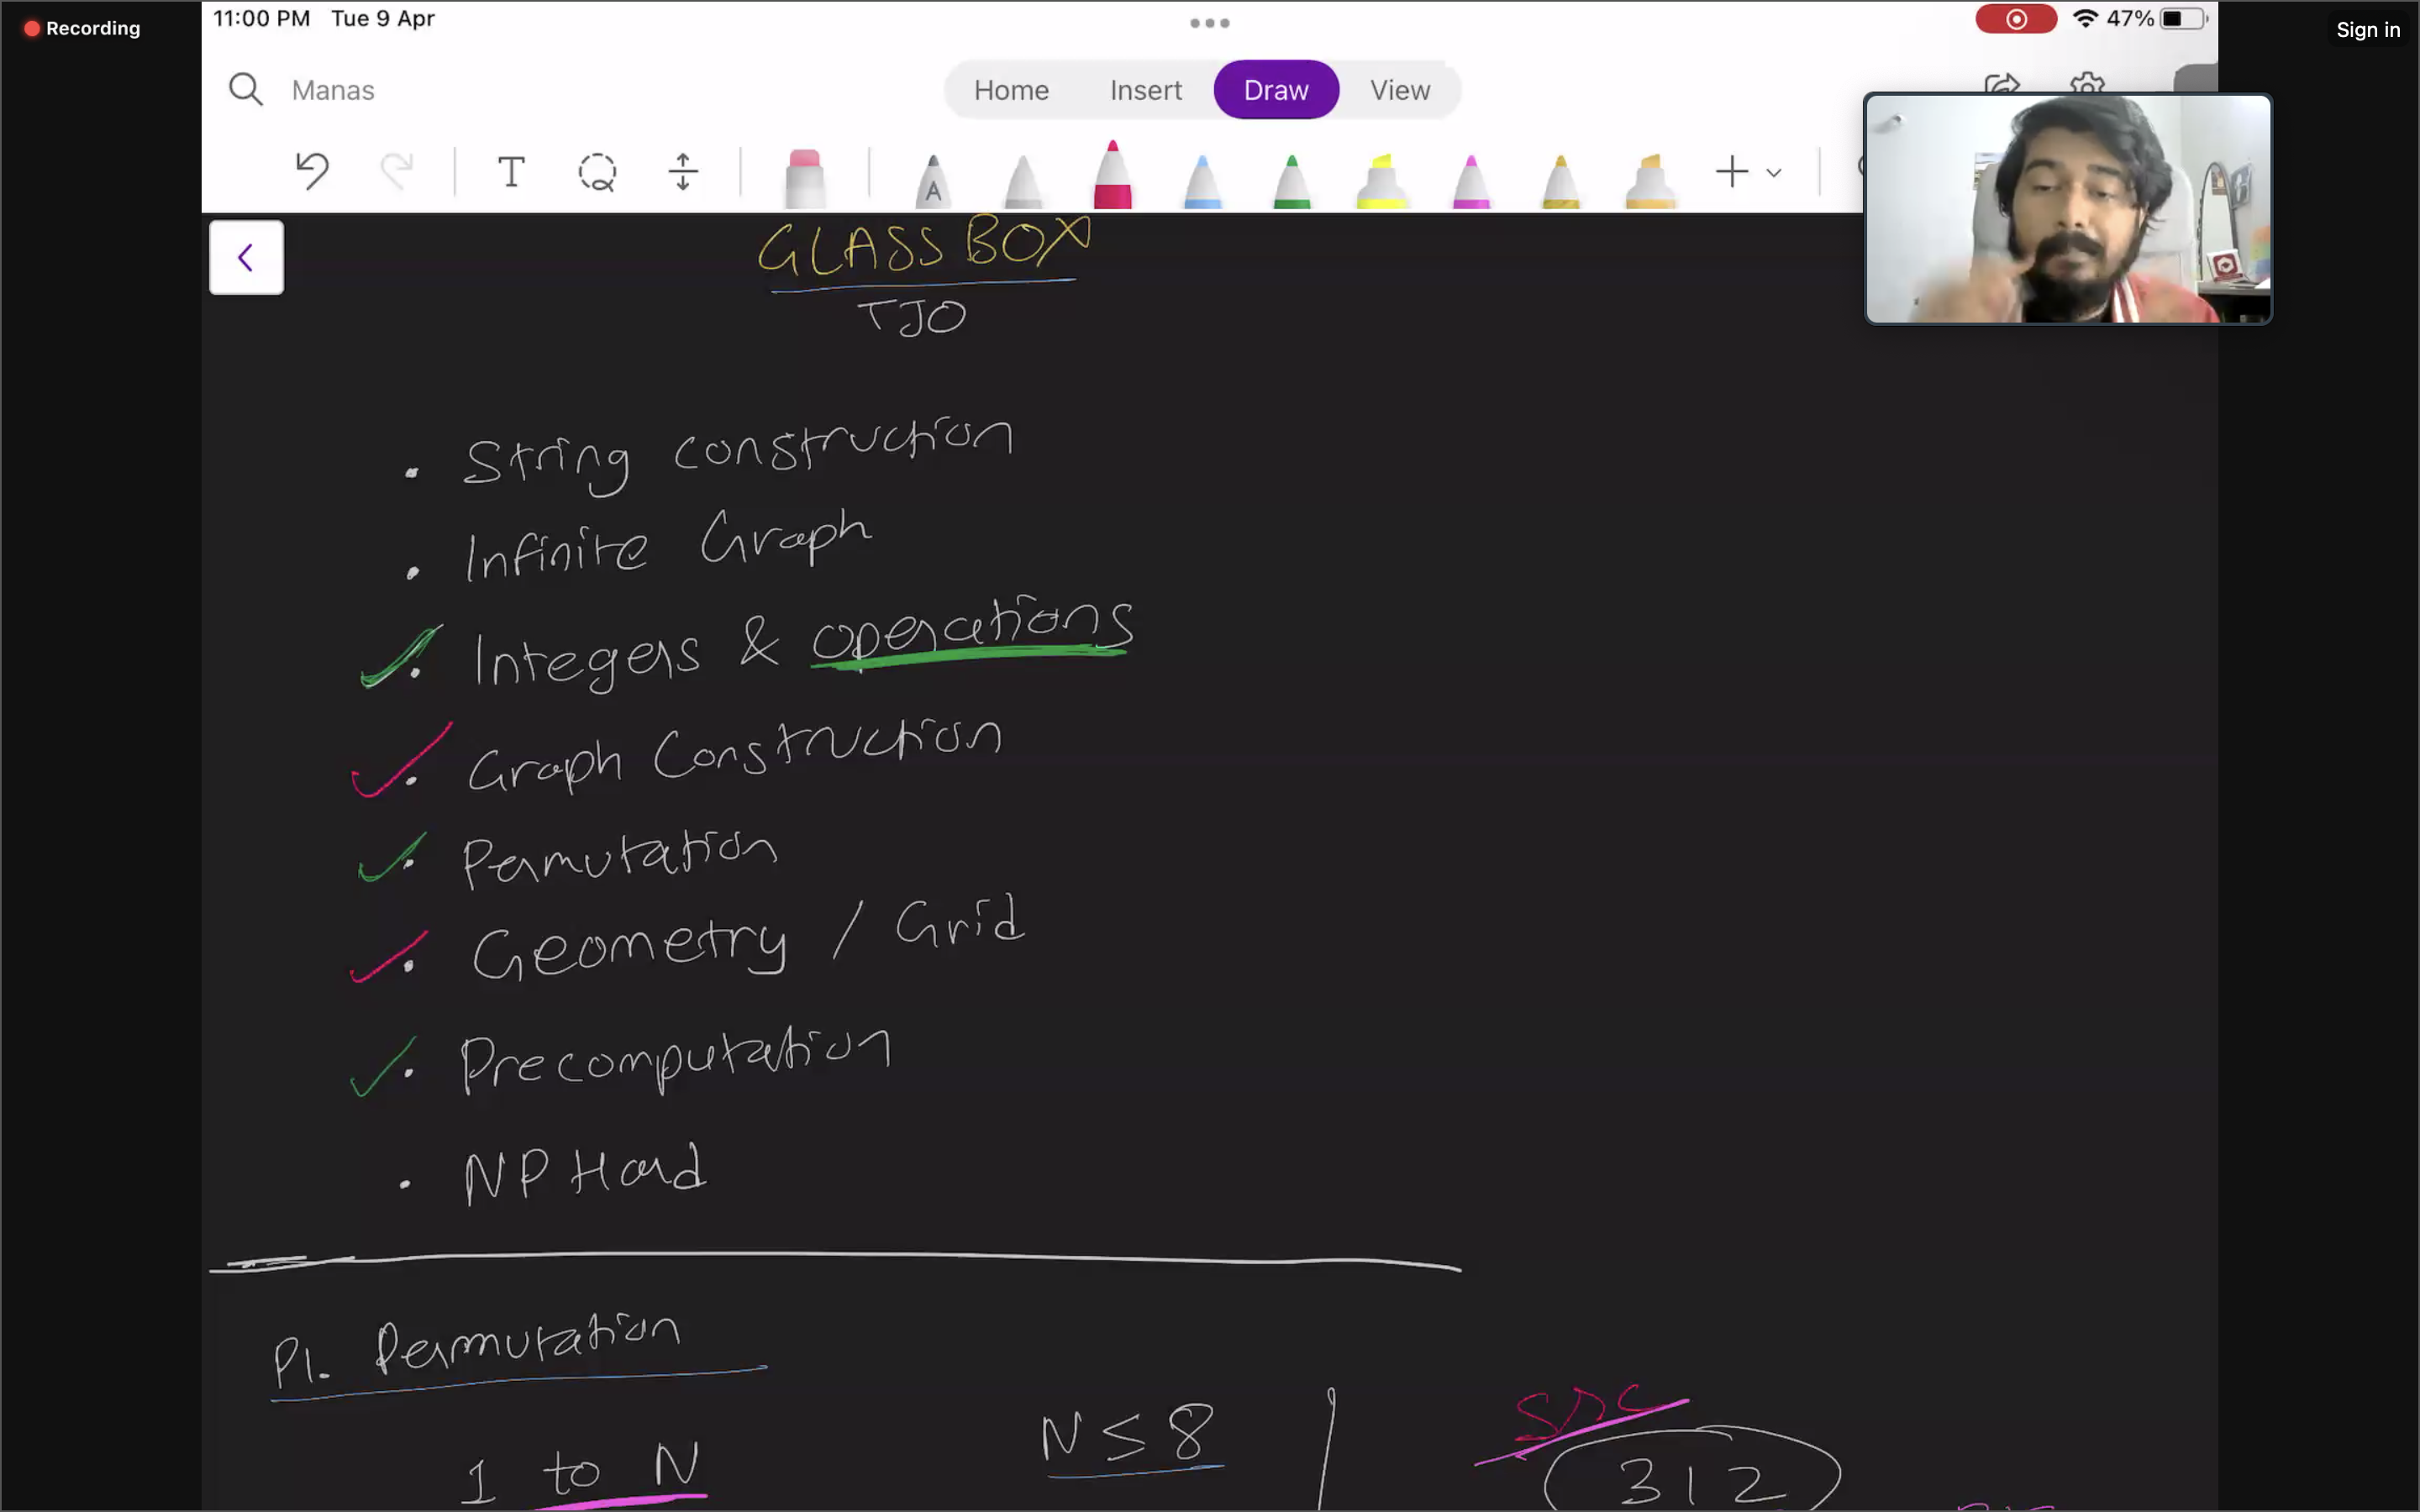 Recording
11:00 PM Tue 9 Apr
47%
Sign in
Manas
Home Insert Draw View
T
A
GLASS BOX
TJO
String construction
Infinite Graph
Integers & operations
Graph Construction
Permutation
Geometry / Grid
Precomputation
NP Hard
P1. Permutation
N ≤ 8
src
1 to N
312